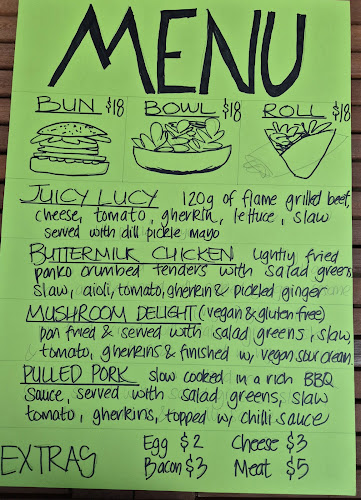 MENU
BUN $18 BOWL $18 ROLL $18
JUICY LUCY 120g of flame grilled beef,
cheese, tomato, gherkin, lettuce, slaw
served with dill pickle mayo
BUTTERMILK CHICKEN lightly fried
panko crumbed tenders with salad greens
slaw, aioli, tomato, gherkin & pickled ginger
MUSHROOM DELIGHT (vegan & gluten free)
pan fried & served with salad greens, slaw,
tomato, gherkins & finished w, vegan sour cream.
PULLED PORK slow cooked in a rich BBQ
sauce, served with salad greens, slaw
tomato, gherkins, topped w, chilli sauce
EXTRAS
Egg $2 Cheese $3
Bacon $3 Meat $5